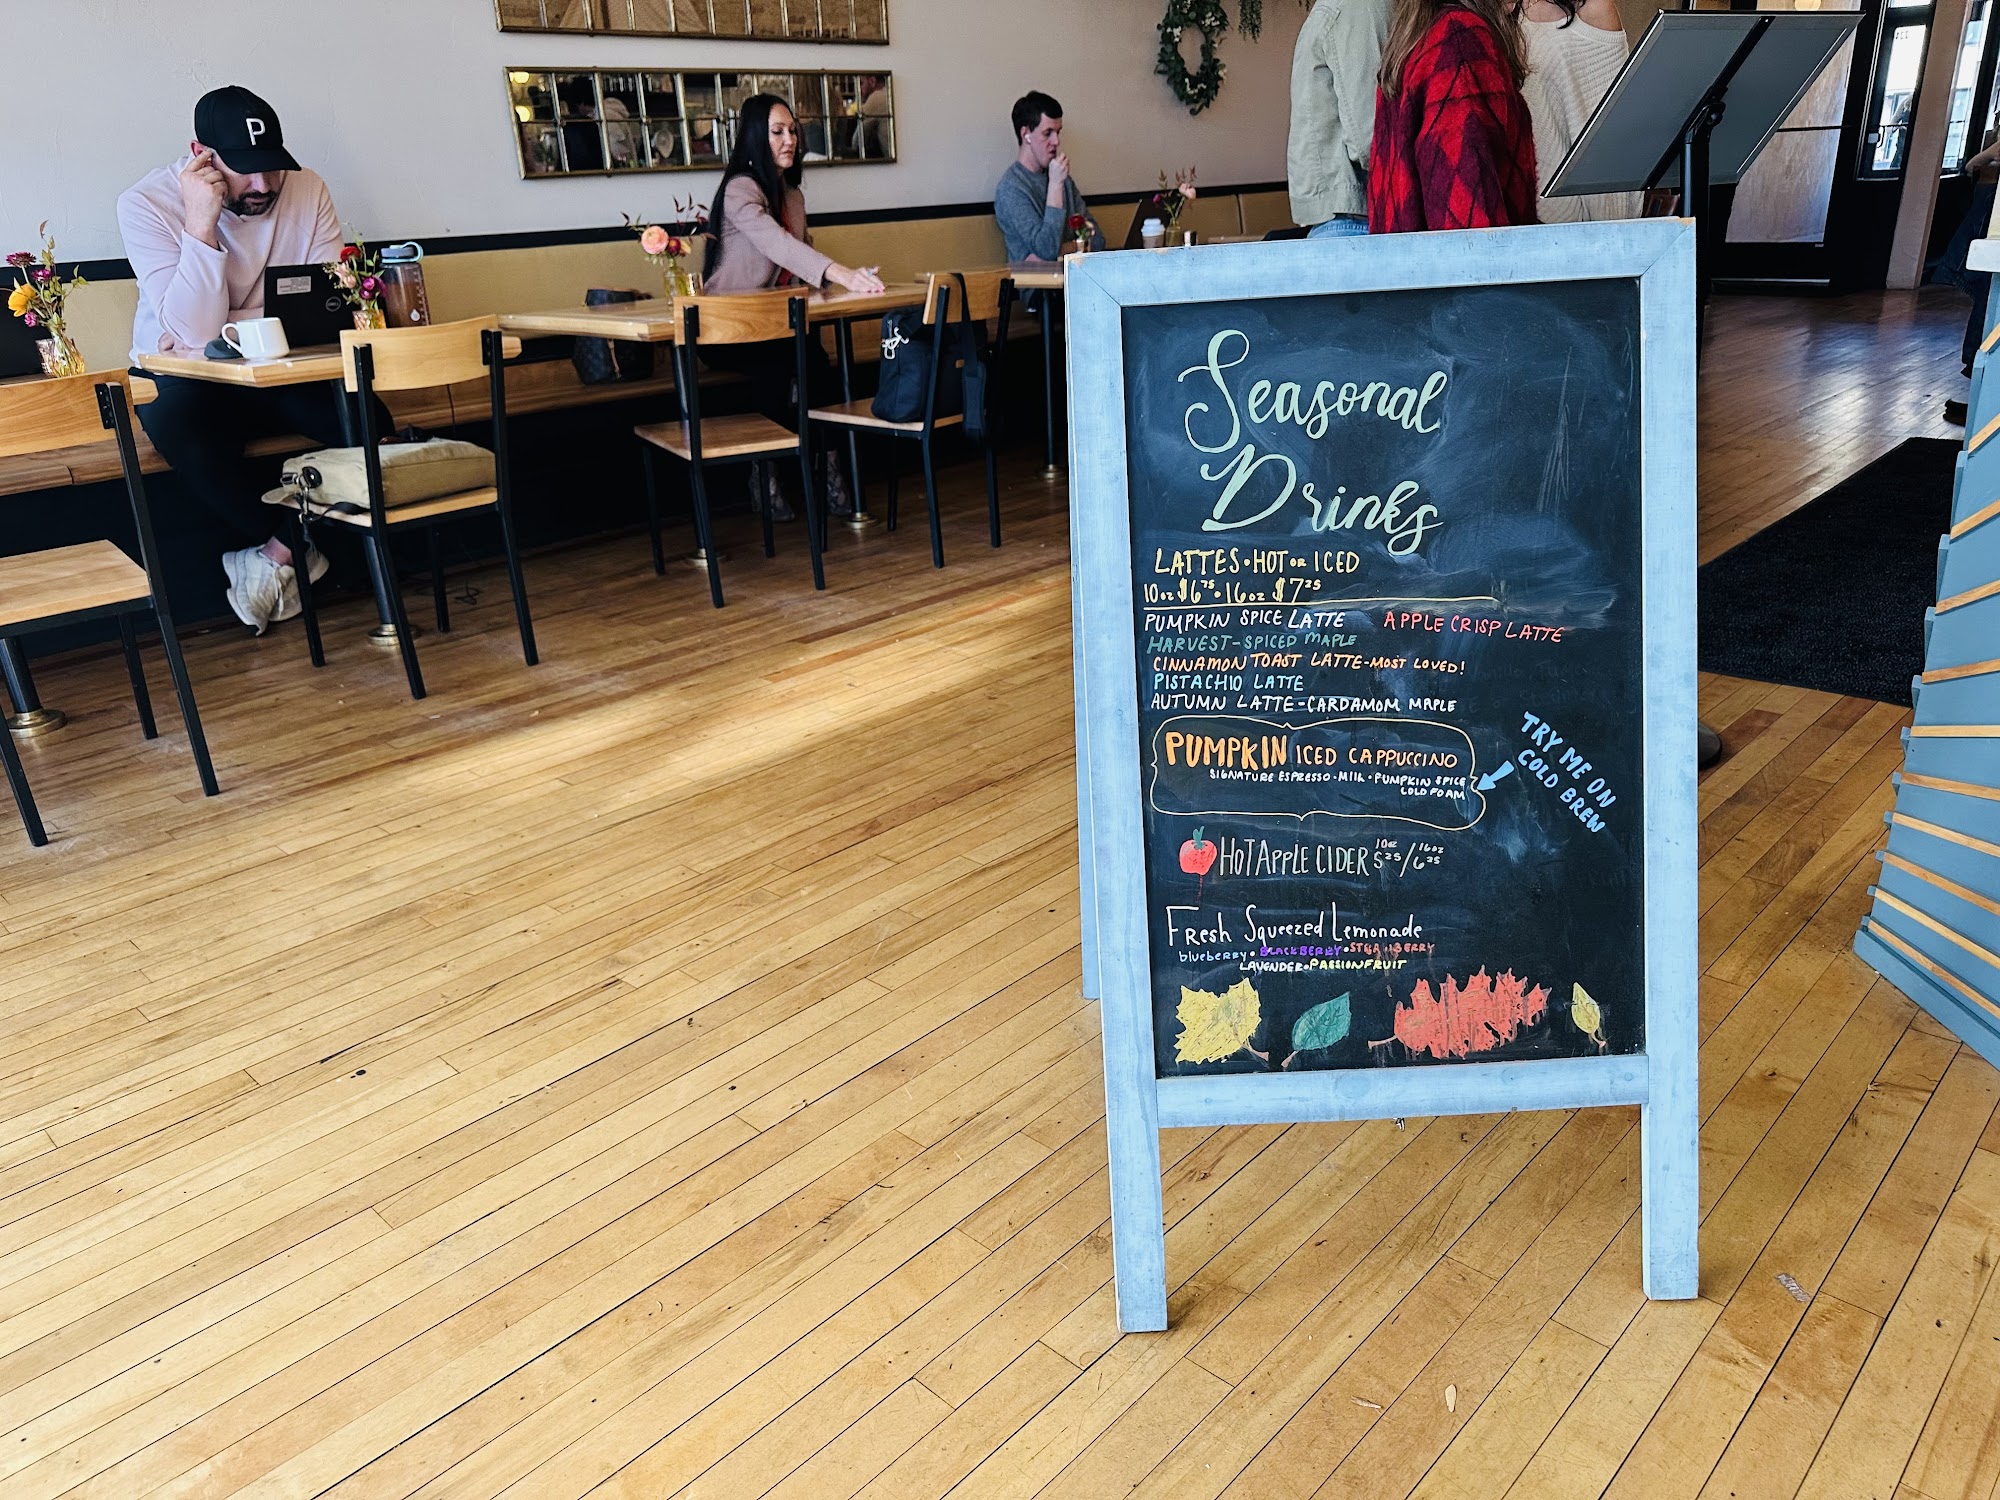 P
Seasonal
Drinks
LATTES • HOT OR ICED
10oz $6.75 • 16oz $7.25
PUMPKIN SPICE LATTE APPLE CRISP LATTE
HARVEST-SPICED MAPLE
CINNAMON TOAST LATTE-MOST LOVED!
PISTACHIO LATTE
AUTUMN LATTE-CARDAMOM MAPLE
PUMPKIN ICED CAPPUCCINO
SIGNATURE ESPRESSO • MILK • PUMPKIN SPICE
COLD FOAM
TRY ME ON
COLD BREW
HOT APPLE CIDER 10oz 5.25/16oz 6.25
Fresh Squeezed Lemonade
blueberry • BLACKBERRY •
LAVENDER • PASSIONFRUIT